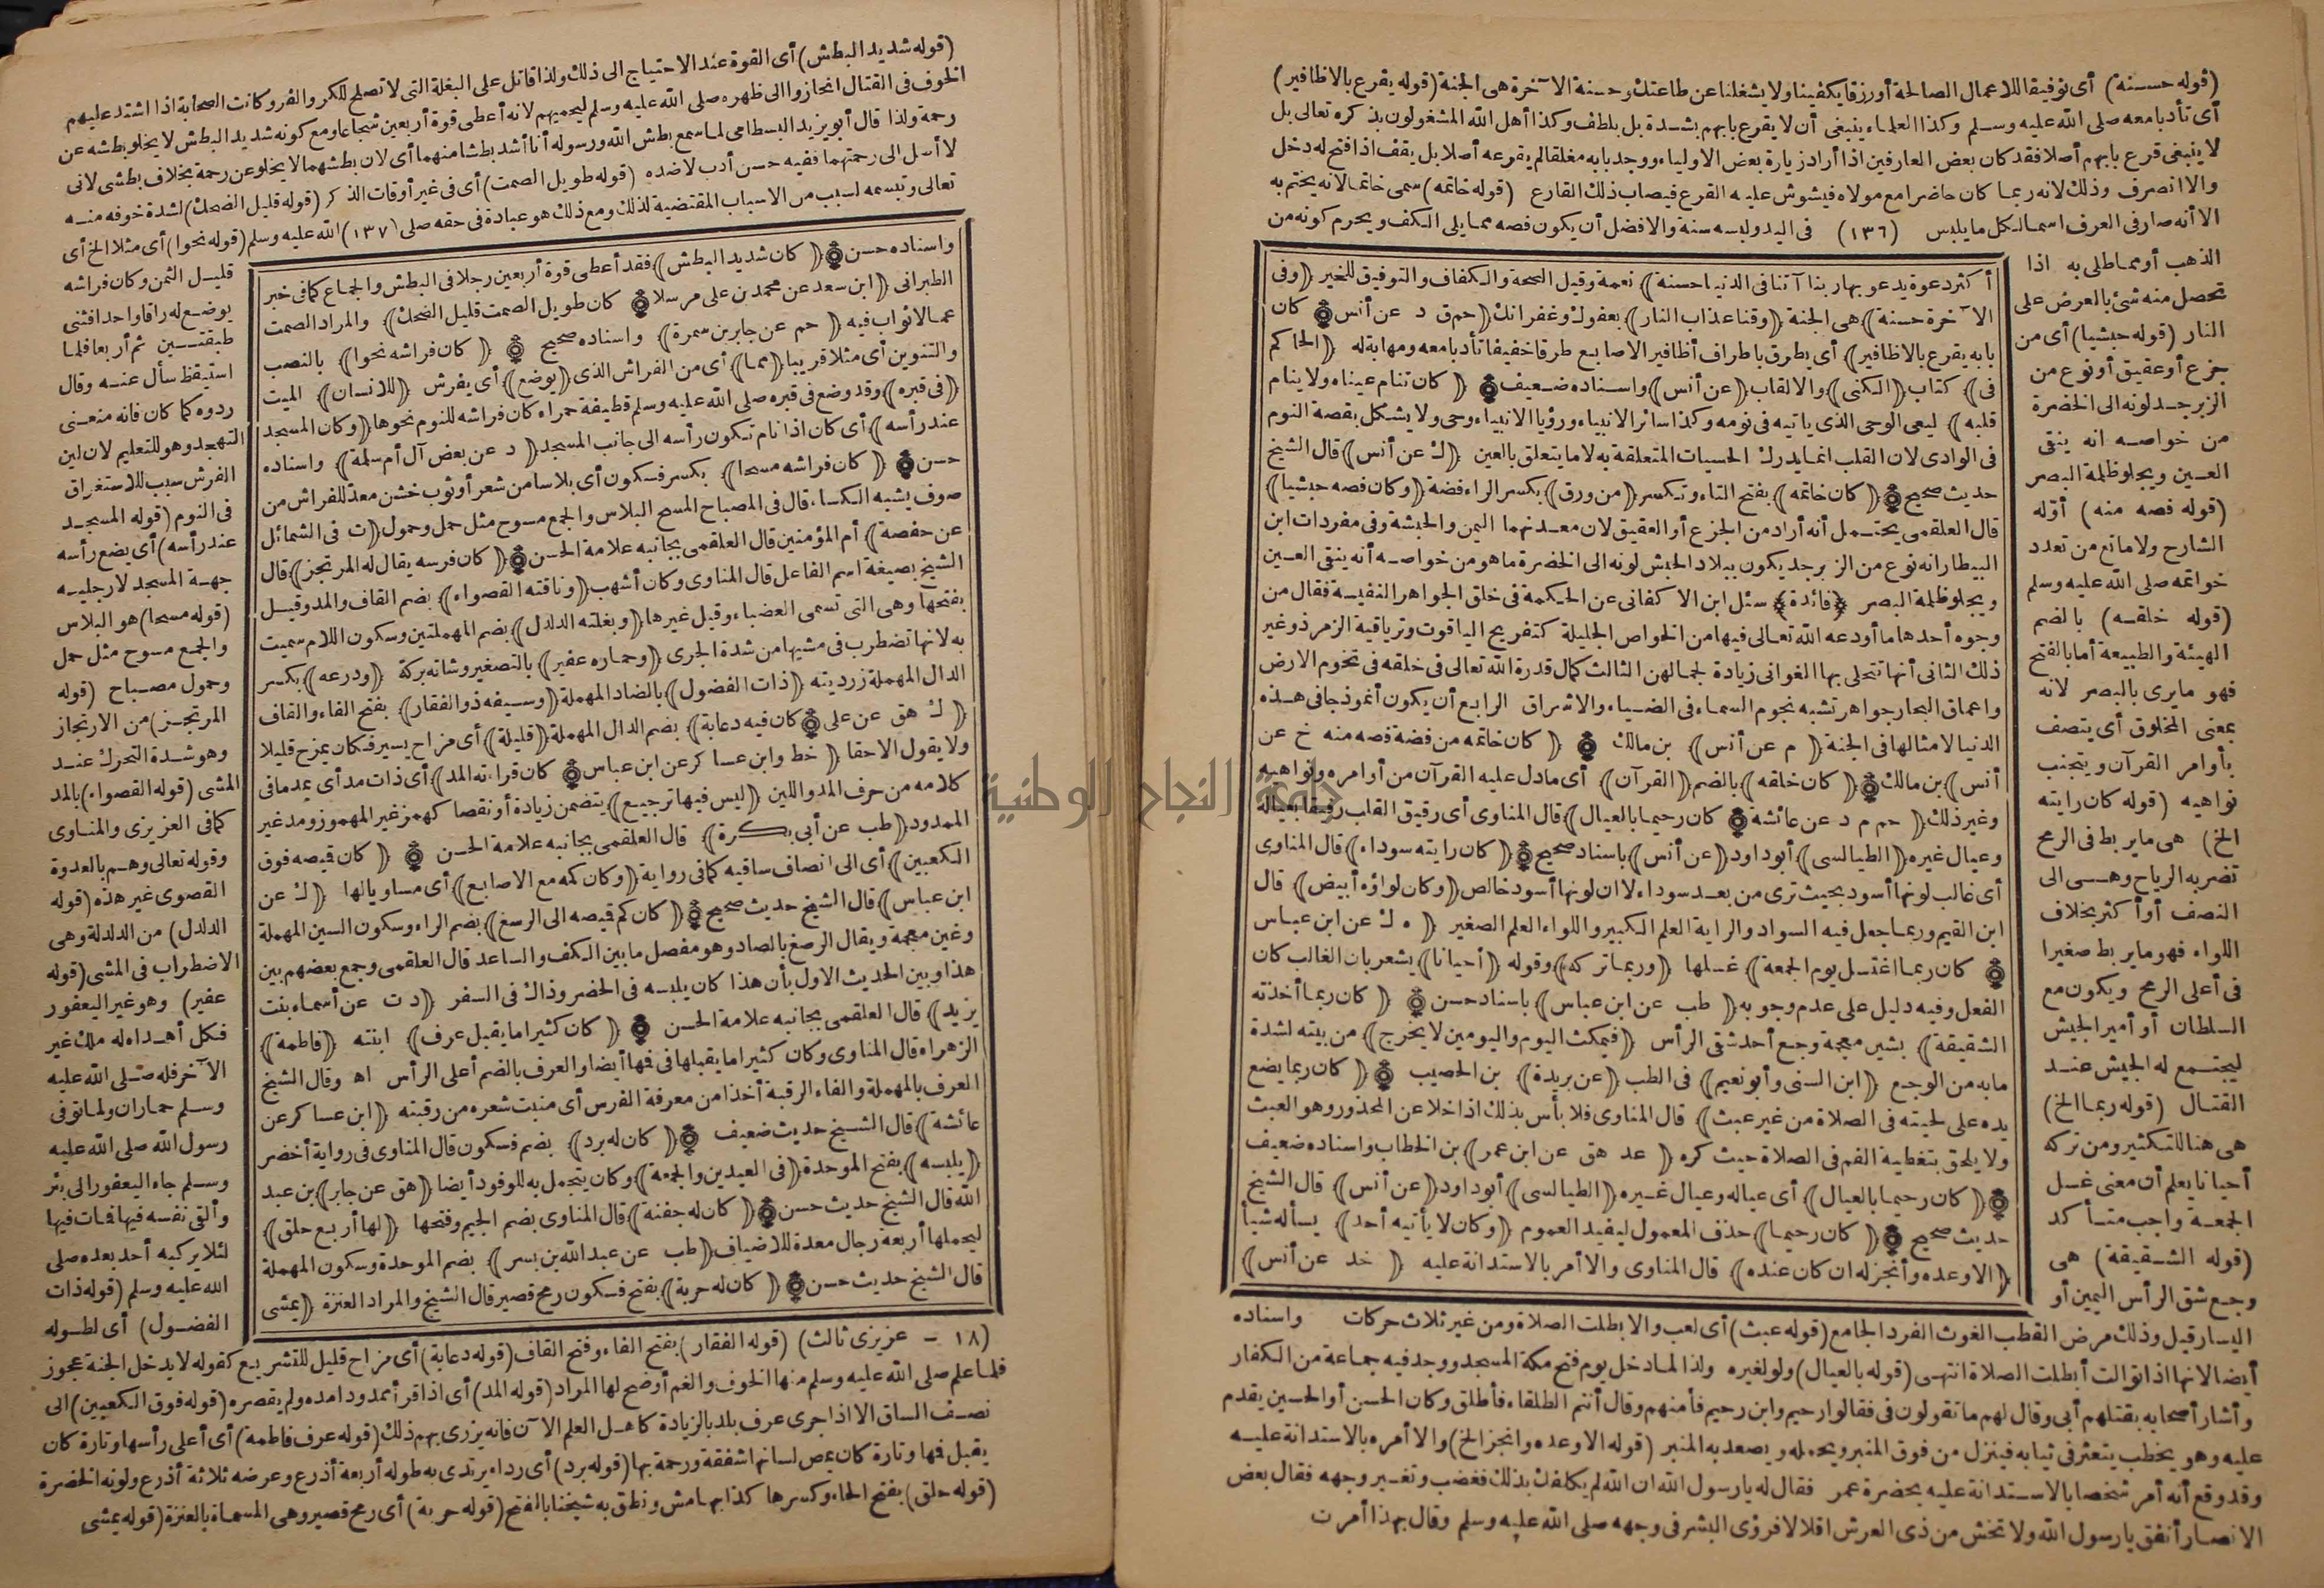 (قوله حسنة) أى توفيقا للاعمال الصالحة أو رزقا يكفينا ولا يشغلنا عن طاعتك وحسنة الآخرة هى الجنة (قوله يقرع بالاظافير)
أى تأدبا معه صلى الله عليه وسلم وكذا العلماء ينبغى أن لا يقرع بابهم بشدة بل بلطف وكذا أهل الله المشغولون بذكره تعالى بل
لا ينبغى قرع بابهم أصلا فقد كان بعض العارفين اذا أراد زيارة بعض الاولياء ووجد بابه مغلقا لم يقرعه أصلا بل يقف اذا فتح له دخل
والا انصرف وذلك لانه ربما كان حاضرا مع مولاه فيشوش عليه القرع فيصاب ذلك القارع (قوله خاتمه) سمى خاتما لانه يختم به
الا أنه صار فى العرف اسما لكل ما يلبس (١٣٦) فى اليد ولبسه سنة والافضل أن يكون فصه مما يلى الكف ويحرم كونه من
الذهب أو مما طلى به اذا
تحصل منه شئ بالعرض على
النار (قوله حبشيا) أى من
جزع أو عقيق أو نوع من
الزبرجد لونه الى الخضرة
من خواصه انه ينقى
العين ويجلو ظلمة البصر
(قوله فصه منه) أوّله
الشارح ولا مانع من تعدد
خواتمه صلى الله عليه وسلم
(قوله خلقه) بالضم
الهيئة والطبيعة أما بالفتح
فهو ما يرى بالبصر لانه
بمعنى المخلوق أى يتصف
بأوامر القرآن ويتجنب
نواهيه (قوله كان رايته
الخ) هى ما يربط فى الرمح
تضربه الرياح وهى الى
النصف أو أكثر بخلاف
اللواء فهو ما يربط صغيرا
فى أعلى الرمح ويكون مع
السلطان أو أمير الجيش
ليجتمع له الجيش عند
القتال (قوله ربما الخ)
هى هنا للتكثير ومن تركه
أحيانا يعلم أن معنى غسل
الجمعة واجب متأكد
(قوله الشقيقة) هى
وجع شق الرأس اليمين أو
أكثر دعوة يدعو بها ربنا آتنا فى الدنيا حسنة) نعمة وقيل الصحة والكفاف والتوفيق للخير (وفى
الآخرة حسنة) هى الجنة (وقنا عذاب النار) بعفوك وغفرانك (حم ق د عن أنس) كان
بابه يقرع بالاظافير) أى يطرق باطراف أظافير الاصابع طرقا خفيفا تأدبا معه ومهابة له (الحاكم
فى) كتاب (الكنى) والالقاب (عن أنس) واسناده ضعيف (كان تنام عيناه ولا ينام
قلبه) ليعى الوحى الذى يأتيه فى نومه وكذا سائر الانبياء ورؤيا الانبياء وحى ولا يشكل بقصة النوم
فى الوادى لان القلب انما يدرك الحسيات المتعلقة به لا ما يتعلق بالعين (ك عن أنس) قال الشيخ
حديث صحيح (كان خاتمه) بفتح التاء وتكسر (من ورق) بكسر الراء فضة (وكان فصه حبشيا)
قال العلقمى يحتمل أنه أراد من الجزع أو العقيق لان معدنهما اليمن والحبشة وفى مفردات ابن
البيطار انه نوع من الزبرجد يكون ببلاد الحبش لونه الى الخضرة ما هو من خواصه أنه ينقى العين
ويجلو ظلمة البصر (فائدة) سئل ابن الاكفانى عن الحكمة فى خلق الجواهر النفيسة فقال من
وجوه أحدها ما أودعه الله تعالى فيها من الخواص الجليلة كتفريح الياقوت وترياقية الزمرذ وغير
ذلك الثانى أنها تتحلى بها الغوانى زيادة لجمالهن الثالث كمال قدرة الله تعالى فى خلقه فى تخوم الارض
واعماق البحار جواهر تشبه نجوم السماء فى الضياء والاشراق الرابع أن يكون أنموذجا فى هذه
الدنيا لامثالها فى الجنة (م عن أنس) بن مالك (كان خاتمه من فضة فصه منه خ عن
أنس) بن مالك (كان خلقه) بالضم (القرآن) أى ما دل عليه القرآن من أوامره ونواهيه
وغير ذلك (حم م د عن عائشة) كان رحيما بالعيال) قال المناوى أى رقيق القلب رفيقا بعياله
وعيال غيره (الطيالسى) أبو داود (عن أنس) باسناد صحيح (كان رايته سوداء) قال المناوى
أى غالب لونها أسود بحيث ترى من بعد سوداء لا ان لونها أسود خالص (وكان لواؤه أبيض) قال
ابن القيم وربما جعل فيه السواد والراية العلم الكبير واللواء العلم الصغير (ه ك عن ابن عباس
كان ربما اغتسل يوم الجمعة) غسلها (وربما تركه) وقوله (أحيانا) يشعر بان الغالب كان
الفعل وفيه دليل على عدم وجوبه (طب عن ابن عباس) باسناد حسن (كان ربما أخذته
الشقيقة) بشين معجمة وجع أحد شقى الرأس (فيمكث اليوم واليومين لا يخرج) من بيته لشدة
ما به من الوجع (ابن السنى وأبو نعيم) فى الطب (عن بريدة) بن الحصيب (كان ربما يضع
يده على لحيته فى الصلاة من غير عبث) قال المناوى فلا بأس بذلك اذا خلا عن المحذور وهو العبث
ولا يلحق بتغطية الفم فى الصلاة حيث كره (عد هق عن ابن عمر) بن الخطاب واسناده ضعيف
(كان رحيما بالعيال) أى عياله وعيال غيره (الطيالسى) أبو داود (عن أنس) قال الشيخ
حديث صحيح (كان رحيما) حذف المعمول ليفيد العموم (وكان لا يأتيه أحد) يسأله شيأ
(الا وعده وأنجز له ان كان عنده) قال المناوى والا أمر بالاستدانة عليه (خد عن أنس)
اليسار قيل وذلك مرض القطب الغوث الفرد الجامع (قوله عبث) أى لعب والا بطلت الصلاة ومن غير ثلاث حركات واسناده
أيضا لانها اذا توالت أبطلت الصلاة انتهى (قوله بالعيال) ولو لغيره ولذا لما دخل يوم فتح مكة المسجد ووجد فيه جماعة من الكفار
وأشار أصحابه بقتلهم أبى وقال لهم ما تقولون فى فقالوا رحيم وابن رحيم فأمنهم وقال أنتم الطلقاء فأطلق وكان الحسن أو الحسين يقدم
عليه وهو يخطب يتعثر فى ثيابه فينزل من فوق المنبر ويحمله ويصعد به المنبر (قوله الا وعده وانجز الخ) والا أمره بالاستدانة عليه
وقد وقع أنه أمر شخصا بالاستدانة عليه بحضرة عمر فقال له يا رسول الله ان الله لم يكلفك بذلك فغضب وتغير وجهه فقال بعض
الانصار أنفق يا رسول الله ولا تخش من ذى العرش اقلالا فرؤى البشر فى وجهه صلى الله عليه وسلم وقال بهذا أمرت
(قوله شديد البطش) أى القوة عند الاحتياج الى ذلك ولذا قاتل على البغلة التى لا تصلح للكر والفر وكانت الصحابة اذا اشتد عليهم
الخوف فى القتال انحازوا الى ظهره صلى الله عليه وسلم ليحميهم لانه أعطى قوة أربعين شجاعا ومع كونه شديد البطش لا يخلو بطشه عن
رحمة ولذا قال أبو يزيد البسطامى لما سمع بطش الله ورسوله أنا أشد بطشا منهما أى لان بطشهما لا يخلو عن رحمة بخلاف بطشى لانى
لا أصل الى رحمتهما ففيه حسن أدب لا ضده (قوله طويل الصمت) أى فى غير أوقات الذكر (قوله قليل الضحك) لشدة خوفه منه
تعالى وتبسمه لسبب من الاسباب المقتضية لذلك ومع ذلك هو عبادة فى حقه صلى (١٣٧) الله عليه وسلم (قوله نحوا) أى مثلا الخ أى
قليل الثمن وكان فراشه
يوضع له راقا واحدا فثنى
طبقتين ثم أربعا فلما
استيقظ سأل عنه وقال
ردوه كما كان فانه منعنى
التهجد وهو للتعليم لان لين
الفرش سبب للاستغراق
فى النوم (قوله المسجد
عند رأسه) أى يضع رأسه
جهة المسجد لا رجليه
(قوله مسحا) هو البلاس
والجمع مسوح مثل حمل
وحمول مصباح (قوله
المرتجز) من الارتجاز
وهو شدة التحرك عند
المشى (قوله القصواء) بالمد
كما فى العزيزى والمناوى
وقوله تعالى وهم بالعدوة
القصوى غير هذه (قوله
الدلدل) من الدلدلة وهى
الاضطراب فى المشى (قوله
عفير) وهو غير اليعفور
فكل أهداه له ملك غير
الآخر فله صلى الله عليه
وسلم حماران ولما توفى
رسول الله صلى الله عليه
وسلم جاء اليعفور الى بئر
وألقى نفسه فيها فمات فيها
لئلا يركبه أحد بعده صلى
الله عليه وسلم (قوله ذات
الفضول) أى لطوله
واسناده حسن (كان شديد البطش) فقد أعطى قوة أربعين رجلا فى البطش والجماع كما فى خبر
الطبرانى (ابن سعد عن محمد بن على مرسلا) كان طويل الصمت قليل الضحك) والمراد الصمت
عما لا ثواب فيه (حم عن جابر بن سمرة) واسناده صحيح (كان فراشه نحوا) بالنصب
والتنوين أى مثلا قريبا (مما) أى من الفراش الذى (يوضع) أى يفرش (للانسان) الميت
(فى قبره) وقد وضع فى قبره صلى الله عليه وسلم قطيفة حمراء كان فراشه للنوم نحوها (وكان المسجد
عند رأسه) أى كان اذا نام تكون رأسه الى جانب المسجد (د عن بعض آل أم سلمة) واسناده
حسن (كان فراشه مسحا) بكسر فسكون أى بلاسا من شعر أو ثوب خشن معد للفراش من
صوف يشبه الكساء قال فى المصباح المسح البلاس والجمع مسوح مثل حمل وحمول (ت فى الشمائل
عن حفصة) أم المؤمنين قال العلقمى بجانبه علامة الحسن (كان فرسه يقال له المرتجز) قال
الشيخ بصيغة اسم الفاعل قال المناوى وكان أشهب (وناقته القصواء) بضم القاف والمد وقيل
بفتحها وهى التى تسمى العضباء وقيل غيرها (وبغلته الدلدل) بضم المهملتين وسكون اللام سميت
به لانها تضطرب فى مشيها من شدة الجرى (وحماره عفير) بالتصغير وشاته بركة (ودرعه) بكسر
الدال المهملة زرديته (ذات الفضول) بالضاد المهملة (وسيفه ذو الفقار) بفتح الفاء والقاف
(ك هق عن على) كان فيه دعابة) بضم الدال المهملة (قليلة) أى مزاح يسير فكان يمزح قليلا
ولا يقول الا حقا (خط وابن عساكر عن ابن عباس) كان قراءته المد) أى ذات مد أى يمد ما فى
كلامه من حرف المد واللين (ليس فيها ترجيع) يتضمن زيادة أو نقصا كهمز غير المهموز ومد غير
الممدود (طب عن أبى بكرة) قال العلقمى بجانبه علامة الحسن (كان قميصه فوق
الكعبين) أى الى انصاف ساقيه كما فى رواية (وكان كمه مع الاصابع) أى مساويا لها (ك عن
ابن عباس) قال الشيخ حديث صحيح (كان كم قميصه الى الرسغ) بضم الراء وسكون السين المهملة
وغين معجمة ويقال الرصغ بالصاد وهو مفصل ما بين الكف والساعد قال العلقمى وجمع بعضهم بين
هذا وبين الحديث الاول بأن هذا كان يلبسه فى الحضر وذاك فى السفر (د ت عن أسماء بنت
يزيد) قال العلقمى بجانبه علامة الحسن (كان كثيرا ما يقبل عرف) ابنته (فاطمة)
الزهراء قال المناوى وكان كثيرا ما يقبلها فى فمها أيضا والعرف بالضم أعلى الرأس اه وقال الشيخ
العرف بالمهملة والفاء الرقبة أخذا من معرفة الفرس أى منبت شعره من رقبته (ابن عساكر عن
عائشة) قال الشيخ حديث ضعيف (كان له برد) بضم فسكون قال المناوى فى رواية أخضر
(يلبسه) بفتح الموحدة (فى العيدين والجمعة) وكان يتجمل به للوفود أيضا (هق عن جابر) بن عبد
الله قال الشيخ حديث حسن (كان له جفنة) قال المناوى بضم الجيم وفتحها (لها أربع حلق)
ليحملها أربعه رجال معدة للاضياف (طب عن عبد الله بن بسر) بضم الموحدة وسكون المهملة
قال الشيخ حديث حسن (كان له حربة) بفتح فسكون رمح قصير قال الشيخ والمراد العنزة (يمشى
(١٨ - عزيزى ثالث) (قوله الفقار) بفتح الفاء وفتح القاف (قوله دعابة) أى مزاح قليل للتشريع كقوله لا يدخل الجنة عجوز
فلما علم صلى الله عليه وسلم منها الخوف والغم أوضح لها المراد (قوله المد) أى اذا قرأ ممدودا مده ولم يقصره (قوله فوق الكعبين) الى
نصف الساق الا اذا جرى عرف بلد بالزيادة كاهل العلم الآن فانه يزرى بهم ذلك (قوله عرف فاطمة) أى أعلى رأسها وتارة كان
يقبل فمها وتارة كان يمص لسانها شفقة ورحمة بها (قوله برد) أى رداء يرتدى به طوله أربعة أذرع وعرضه ثلاثة أذرع ولونه الخضرة
(قوله حلق) بفتح الحاء وكسرها كذا بهامش ونطق به شيخنا بالفتح (قوله حربة) أى رمح قصير وهى المسماة بالعنزة (قوله يمشى
جامعة النجاح الوطنية